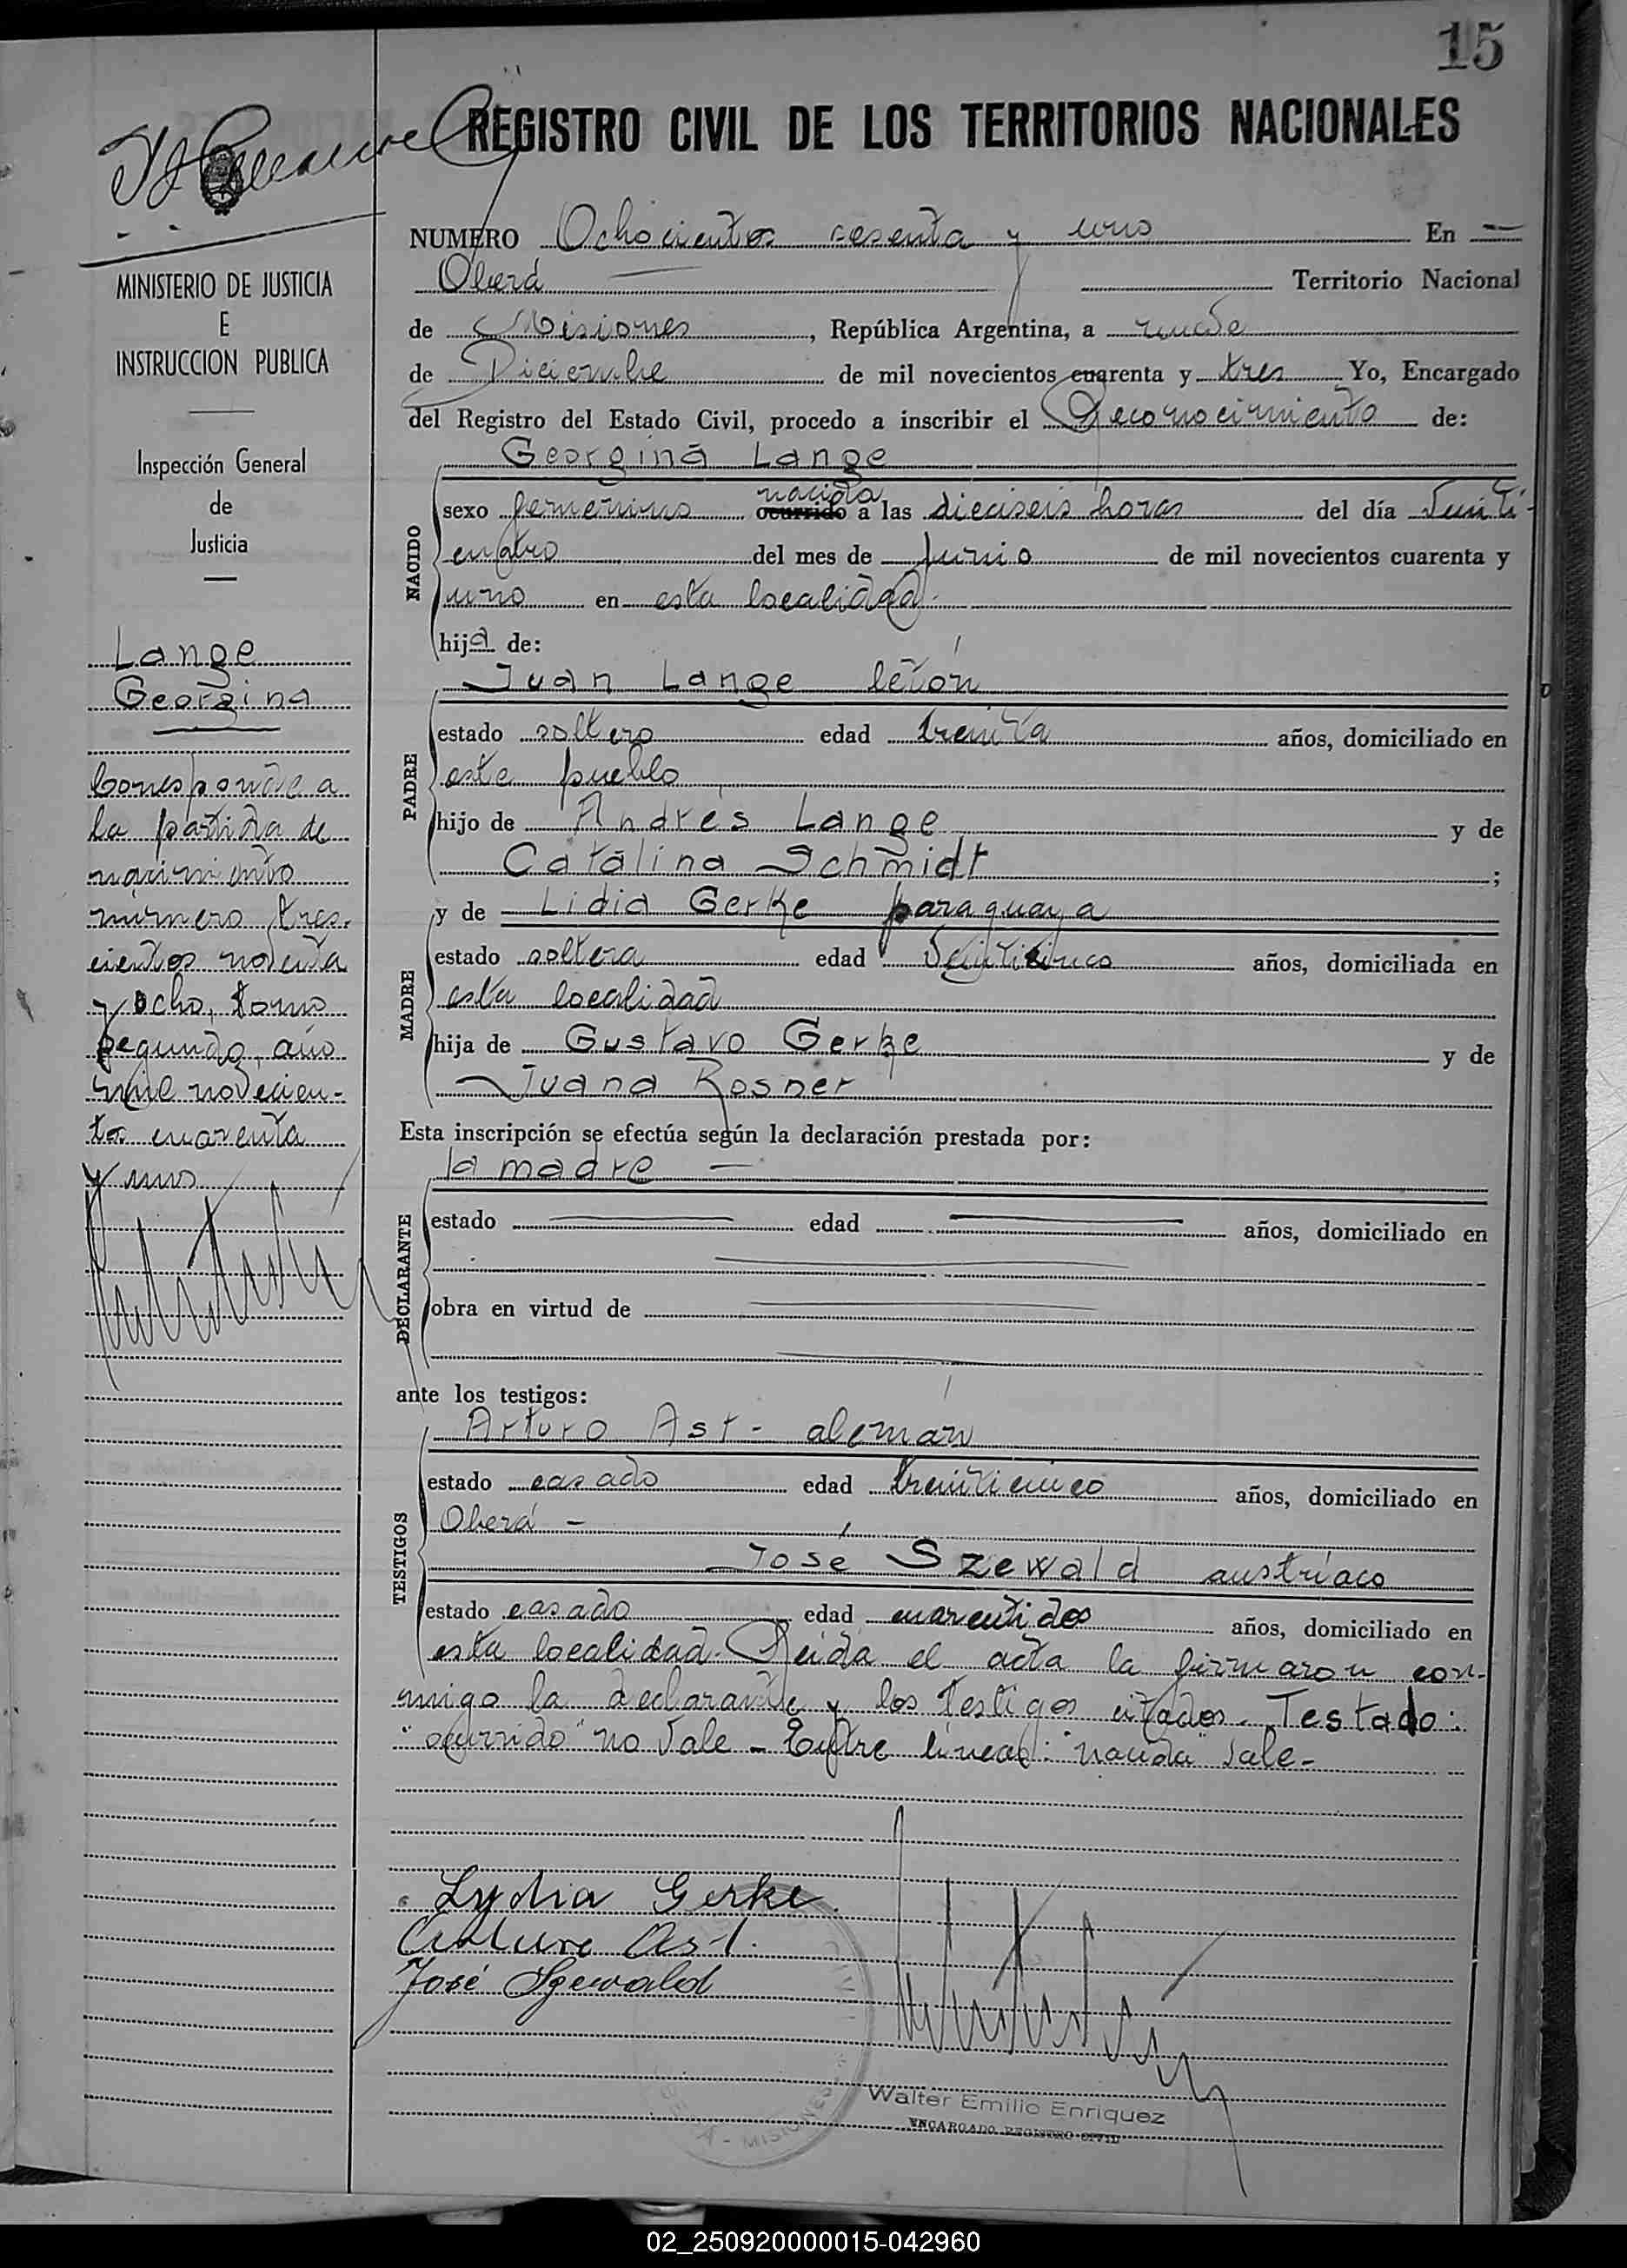 15
REGISTRO CIVIL DE LOS TERRITORIOS NACIONALES
NUMERO Ochocientos sesenta y uno En
Oberá Territorio Nacional
de Misiones, República Argentina, a nueve
de Diciembre de mil novecientos cuarenta y tres Yo, Encargado
del Registro del Estado Civil, procedo a inscribir el Reconocimiento de:
Georgina Lange
nacida
sexo femenino ocurrido a las dieciseis horas del día Veinti-
cuatro del mes de Junio de mil novecientos cuarenta y
uno en esta localidad.
hija de:
NACIDO
Juan Lange letón
estado soltero edad treinta años, domiciliado en
este pueblo
hijo de Andrés Lange y de
Catalina Schmidt ;
PADRE
y de Lidia Gerke paraguaya
estado soltera edad Veinticinco años, domiciliada en
esta localidad
hija de Gustavo Gerke y de
Juana Rosner
MADRE
Esta inscripción se efectúa según la declaración prestada por:
la madre —
estado edad años, domiciliado en
obra en virtud de
DECLARANTE
ante los testigos:
Arturo Ast - alemán
estado casado edad treinticinco años, domiciliado en
Oberá -
José Szewald austríaco
estado casado edad cuarentidos años, domiciliado en
TESTIGOS
esta localidad. Leida el acta la firmaron con-
migo la declarante y los testigos citados. Testado:
"ocurrido" no vale - Entre líneas: "nacida" vale-
Lydia Gerke
Arturo Ast.
José Szewald
Walter Emilio Enriquez
ENCARGADO REGISTRO CIVIL
MISIONES
MINISTERIO DE JUSTICIA
E
INSTRUCCION PUBLICA
Inspección General
de
Justicia
Lange
Georgina
Corresponde a
la partida de
nacimiento
número tres-
cientos noventa
y ocho, tomo
segundo, año
mil novecien-
tos cuarenta
y uno
02_250920000015-042960